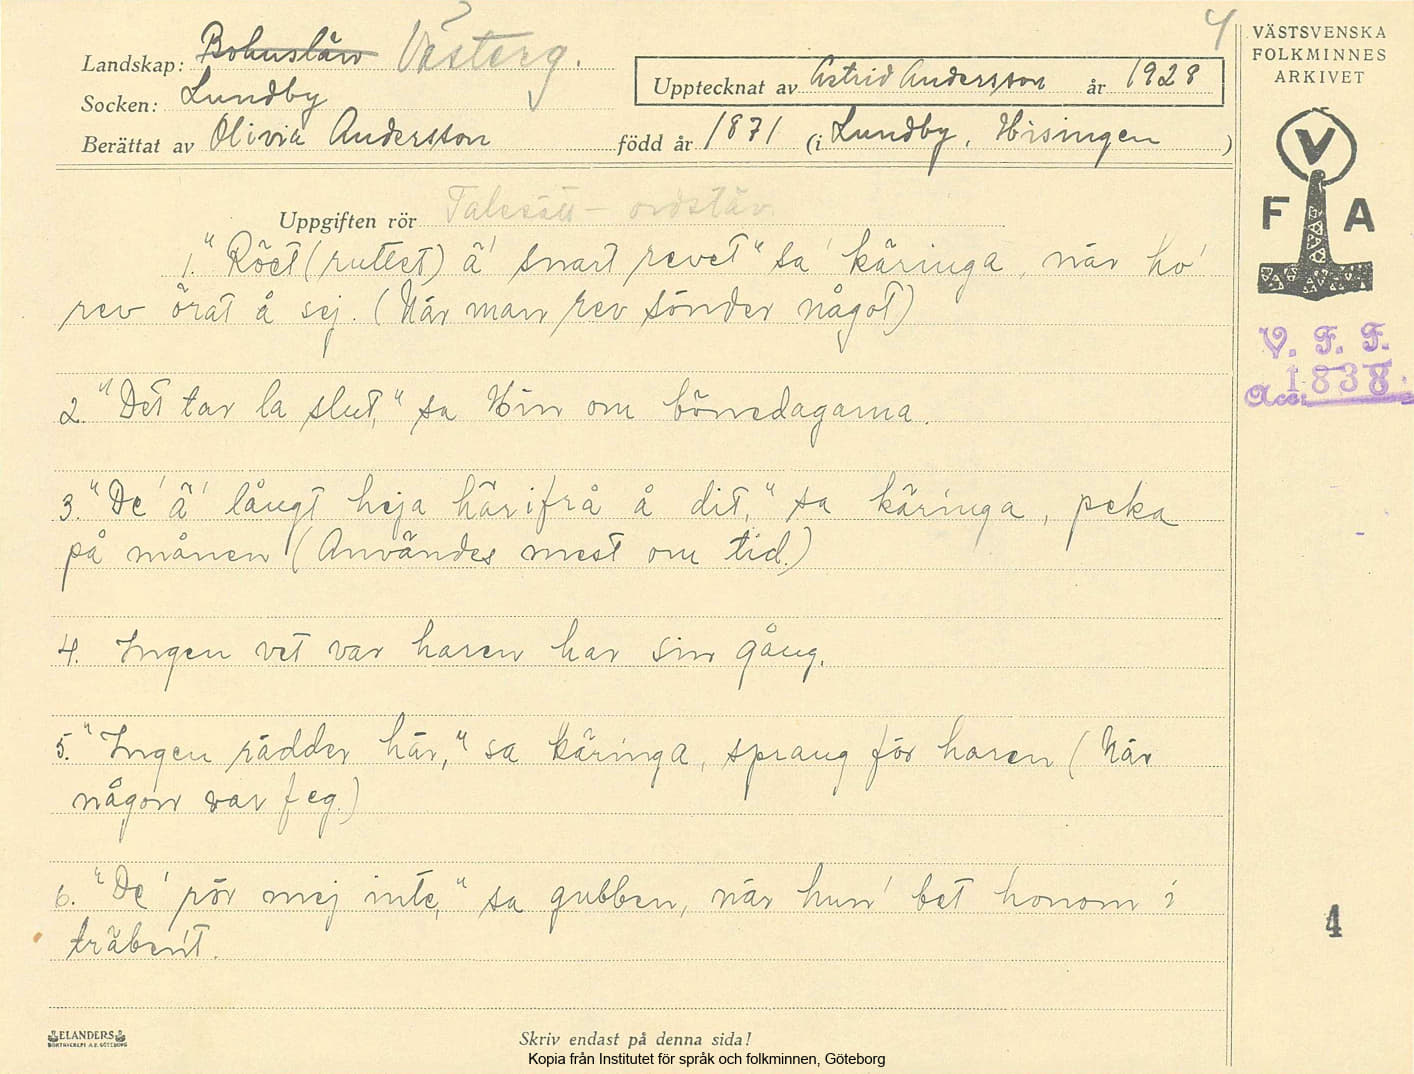 4
VÄSTSVENSKA
FOLKMINNES
ARKIVET
Landskap: Bohuslän Västerg.
Socken: Lundby
Upptecknat av Astrid Andersson år 1928
Berättat av Olivia Andersson född år 1871 (i Lundby, Hisingen)
V
F A
Uppgiften rör Talesätt – ordstäv
1. "Röet (ruttet) ä' snart revet" sa' käringa, när ho'
rev örat å sej. (När man rev sönder något)
V. F. F.
Acc. 1838.
2. "Det tar la slut," sa Hin om böнedagarna.
3. "De' ä' långt heja härifrå å dit," sa käringa, peka
på månen (Användes mest om tid.)
4. Ingen vet var haren har sin gång.
5. "Ingen rädder här," sa käringa, sprang för haren (När
någon var feg.)
6. "De' rör mej inte," sa gubben, när hun' bet honom i
träben't.
4
ELANDERS
Skriv endast på denna sida!
Kopia från Institutet för språk och folkminnen, Göteborg